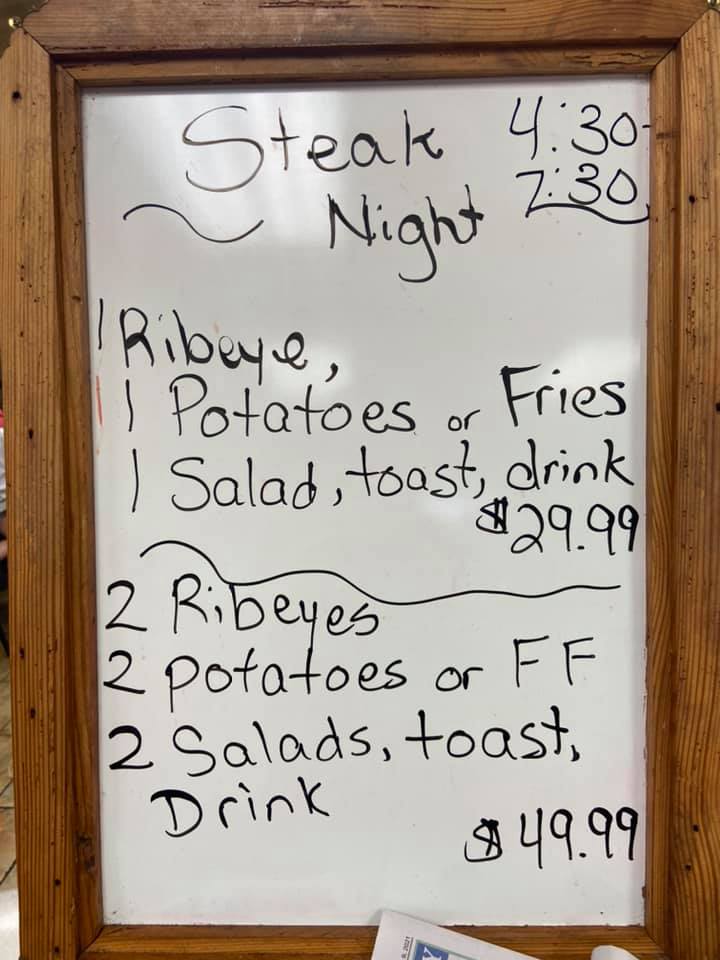 Steak 4:30-
Night 7:30
1 Ribeye,
1 Potatoes or Fries
1 Salad, toast, drink
$29.99
2 Ribeyes
2 potatoes or FF
2 Salads, toast,
Drink
$49.99